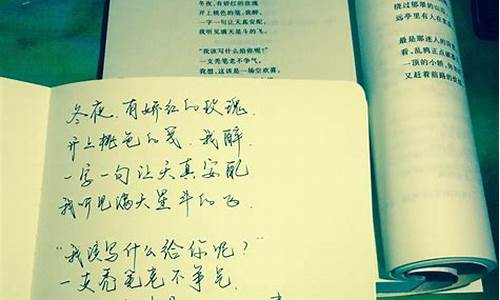 冬夜,有娇红的玫瑰
开上桃色的笺,我醉,
一字一句让天真安配,
我听见满天星斗的飞。
"我该写什么给你呢?"
一支秃笔老不争气,
我想,这该是一场空欢喜。
绕过郁翠的山
远亭里有人在
最是那迷人的
看,乱鸦正点破
一顶的小轿,
又赶着前路的
冬夜、有娇红的玫瑰、
开上桃色的笺、我醉、
一字一句让天真安配
我听见满天星斗的飞、
"我该写什么给你呢?"
一支秃笔老不争气、